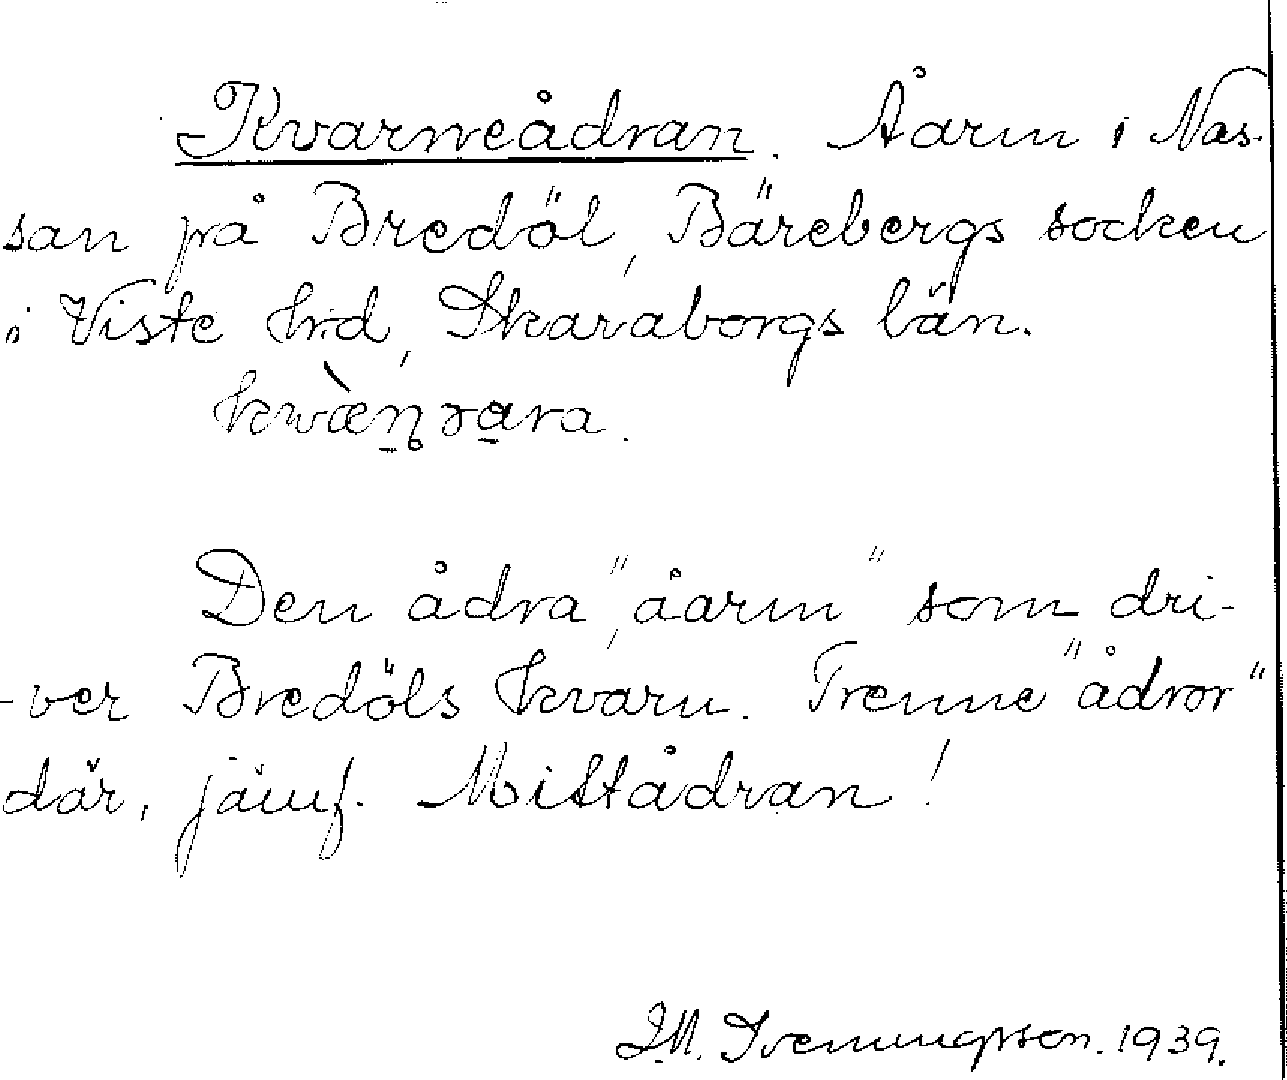 Kvarneådran. Åarm i Nos-
san på Bredöl, Bärebergs socken
i Viste hrd, Skaraborgs län.
Den ådra, "åarm" som dri-
-ver Bredöls kvarn. Trenne "ådror"
där, jämf. Mittådran!
J.M. Svenungsson. 1939.